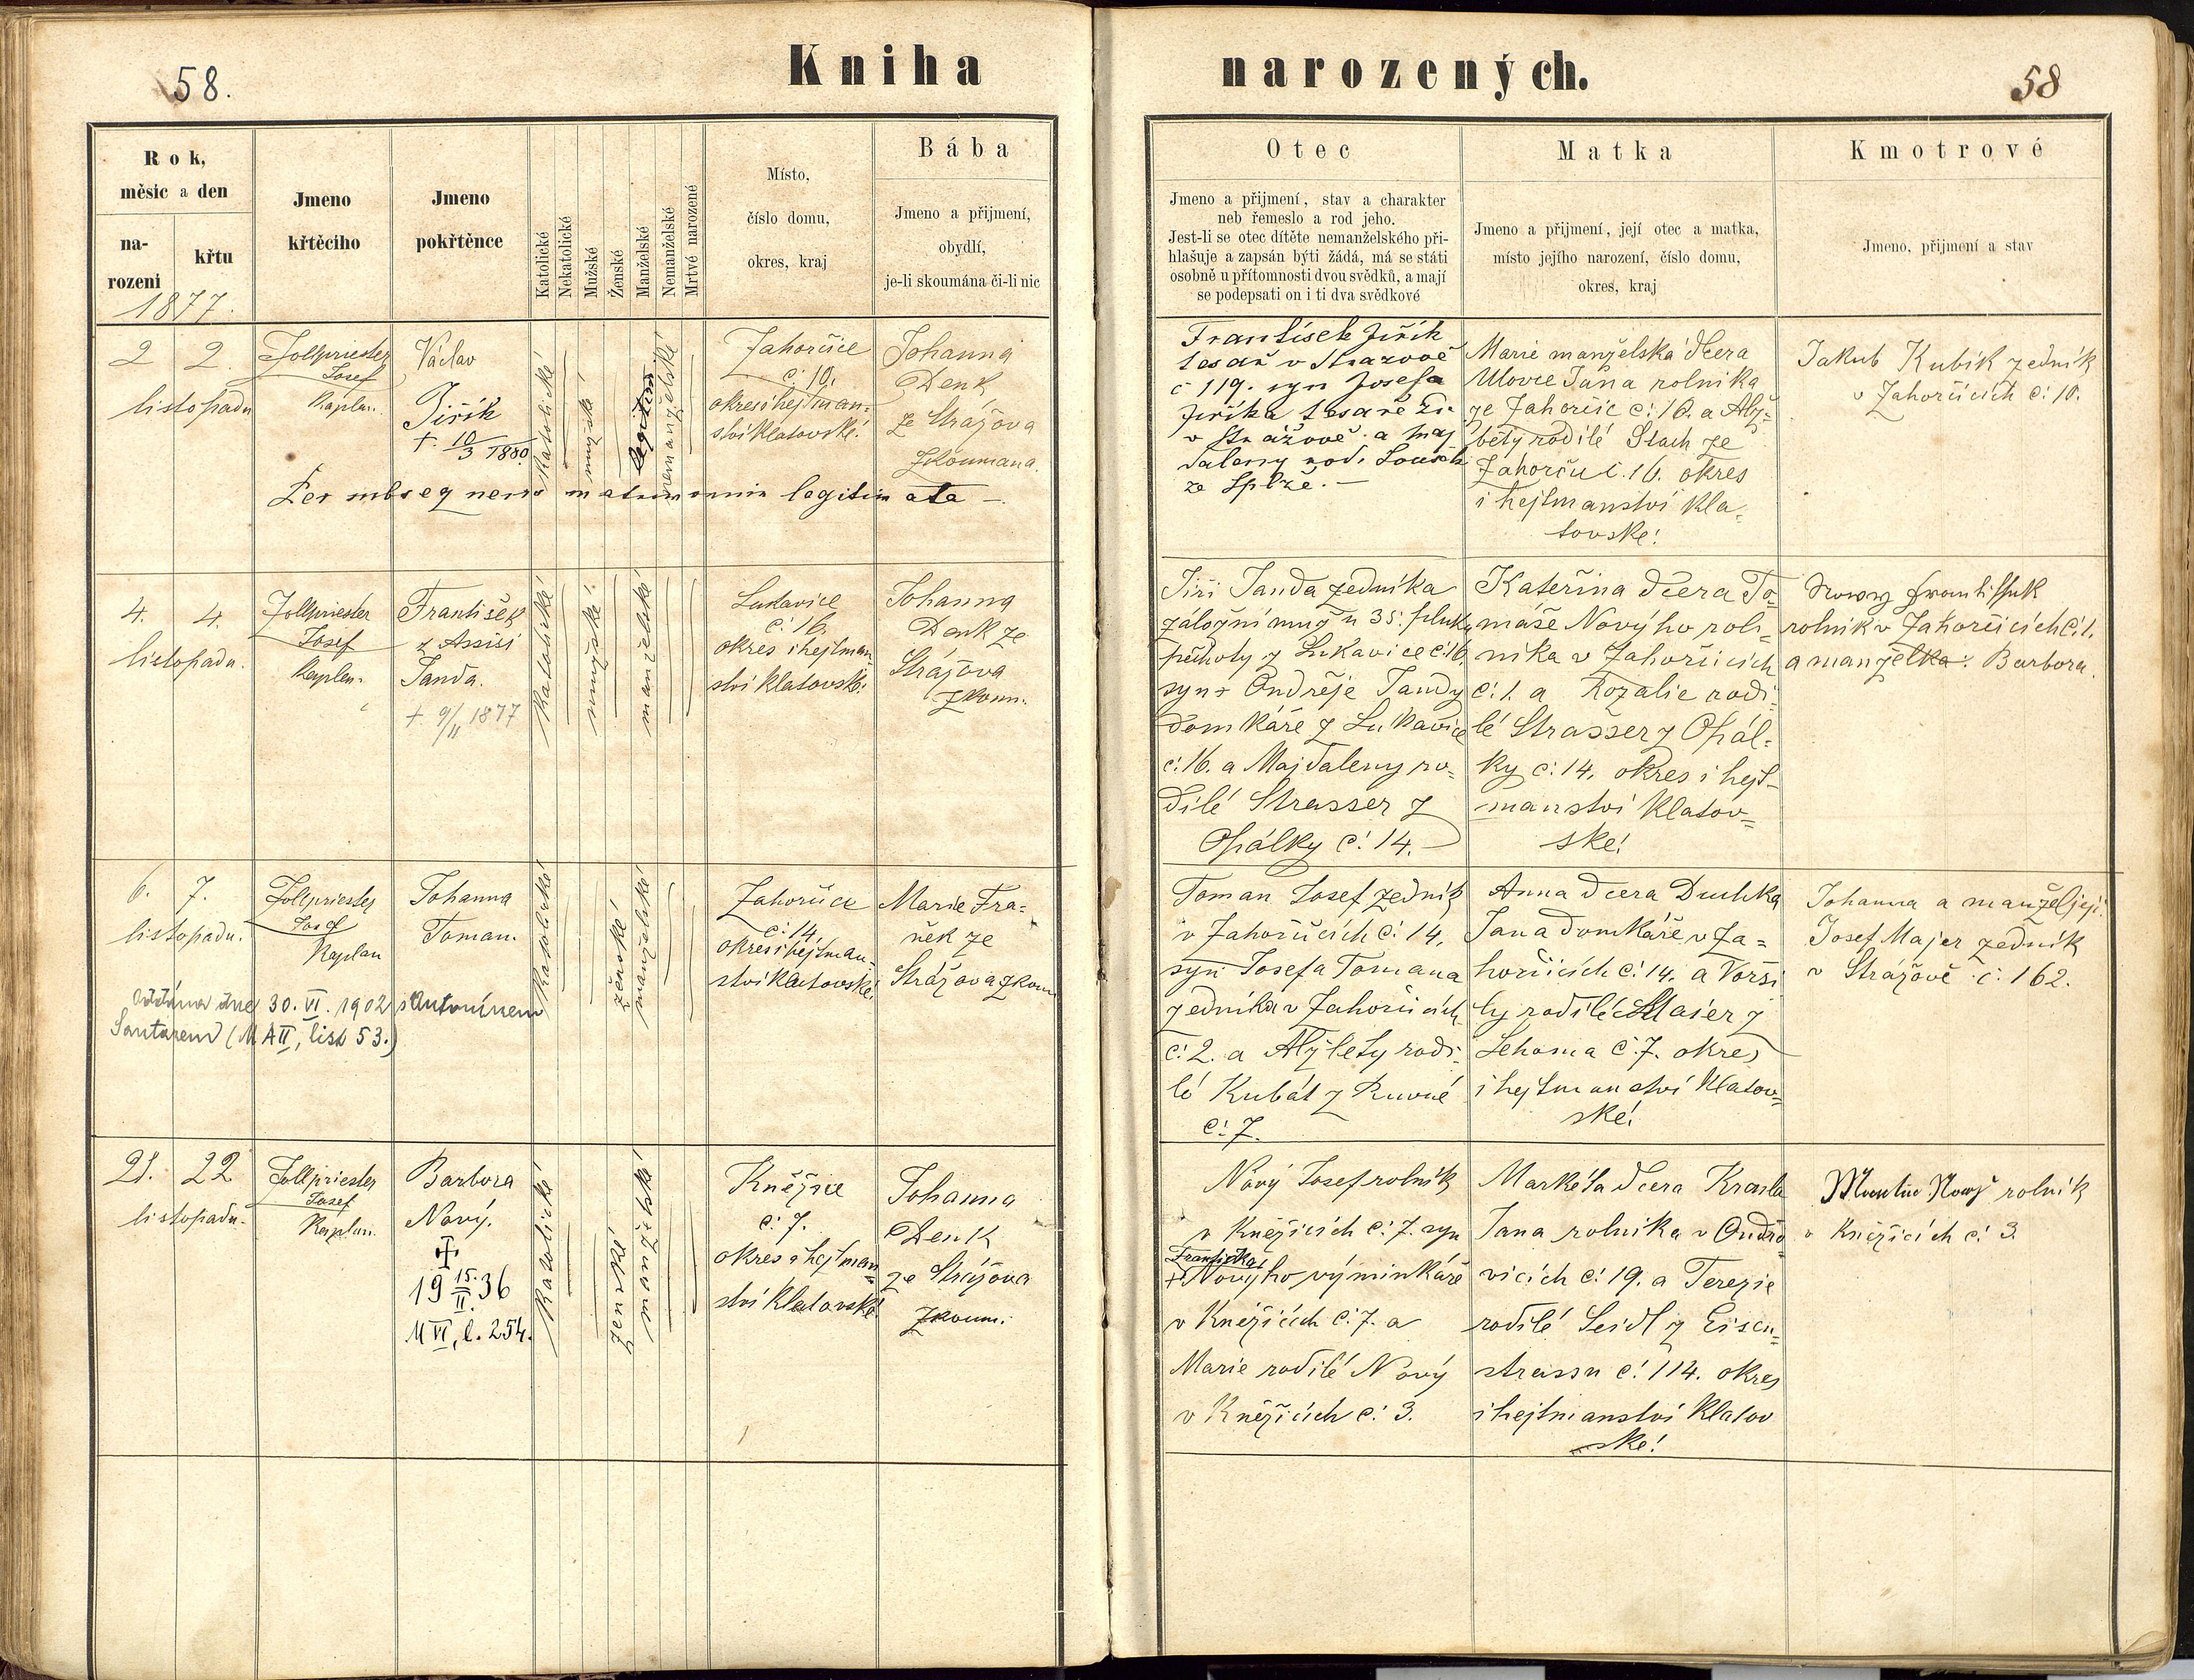 58.
Kniha
narozených.
58
Rok,
měsic a den
na-
rozeni
křtu
1877.
Jmeno
křtěciho
Jmeno
pokřtěnce
Katolické
Nekatolické
Mužské
Ženské
Manželské
Nemanželské
Mrtvé narozené
Místo,
číslo domu,
okres, kraj
Bába
Jmeno a přijmení,
obydlí,
je-li skoumána či-li nic
Otec
Jmeno a přijmení, stav a charakter
neb řemeslo a rod jeho.
Jest-li se otec dítěte nemanželského při-
hlašuje a zapsán býti žádá, má se státi
osobně u přítomnosti dvou svědků, a mají
se podepsati on i ti dva svědkové
Matka
Jmeno a přijmení, její otec a matka,
místo jejího narození, číslo domu,
okres, kraj
Kmotrové
Jmeno, přijmení a stav
2 2.
listopadu
Zollpriester
Josef
Kaplan.
Václav
Jiřík
+ 10/3 1880
katolické
mužské
legitim
nemanželské
Zahorčice
č: 10.
okres i hejtman=
ství klatovské.
Johanna
Denk
ze Strážova
Zkoumana.
Per subsequens matrimonium legitimata —.
František Jiřík
tesař v Strazově
č 119. syn Josefa
Jiříka tesaře
v Strážově a Maj
daleny rod.
ze
Marie manželská dcera
Ulovce Jana rolníka
ze Zahorčic č: 10. a Alž=
běty rodilé Stach ze
Zahorčic č. 16. okres
i hejtmanství kla=
tovské!
Jakub Kubík zedník
v Zahorčicích č: 10.
4. 4.
listopadu.
Zollpriester
Josef
Kaplan.
František
z Assisi
Janda.
+ 9/11 1877
katolické
mužské.
manželské
Lukavice
č: 16.
okres i hejtman
ství klatovské.
Johanna
Denk ze
Strážova
Zkoum.
Jiří Janda zedníka
záložní muž u 35. pluku
pěchoty z Lukavice č: 16
syn + Ondřeje Jandy
domkáře z Lukavice
č: 16. a Majdaleny ro=
dilé Strasser z
Opálky č: 14.
Kateřina dcera To=
máše Novýho rol=
níka v Zahorčicích
č: 1. a Rozalie rodi=
lé Strasser z Opál=
ky č: 14. okres i hejt=
manství klatov=
ské!
Nowy František
rolník v Zahorčicích č: 1.
a manželka: Barbora.
6. 7.
listopadu.
Zollpriester
Josef
Kaplan
Johanna
Toman.
katolické
ženské
manželské
Zahorčice
č: 14.
okres i hejtman=
ství klatovské.
Marie Fra=
něk ze
Strážova zkoum
Oddána dne 30. VI. 1902 s Antonínem
Santarem (M AII, list 53.)
Toman Josef zedník
v Zahorčicích č: 14.
syn Josefa Tomana
zedníka v Zahorčicích
č: 2. a Alžběty rodi=
lé Kubát z Ruvné
č: 7.
Anna dcera Duchka
Jana domkáře v Za=
horčicích č: 14. a Vorši
ly rodilé Maier z
Lehoma č: 7. okres
i hejtmanství klatov=
ské!
Johanna a manžel její
Josef Majer zedník
v Strážově č: 162.
21. 22
listopadu.
Zollpriester
Josef
Kaplan.
Barbora
Nový.
✝
19 15./II. 36
M VI, l. 254.
katolické
ženské
manželské
Kněžice
č: 7.
okres i hejtman=
ství klatovské!
Johanna
Denk
ze Strážova
Zkoum.
Nový Josef rolník
v Kněžicích č: 7. syn
Františka
+ Novýho výminkáře
v Kněžicích č: 7. a
Marie rodilé Nový
v Kněžicích č: 3.
Markéta dcera Krasla
Jana rolníka v Ondřo=
vicích č: 19. a Terezie
rodilé Seidl z Eisen=
strassu č: 114. okres
i hejtmanství klatov
ské!
Martin Nowý rolník
v Kněžicích č: 3.